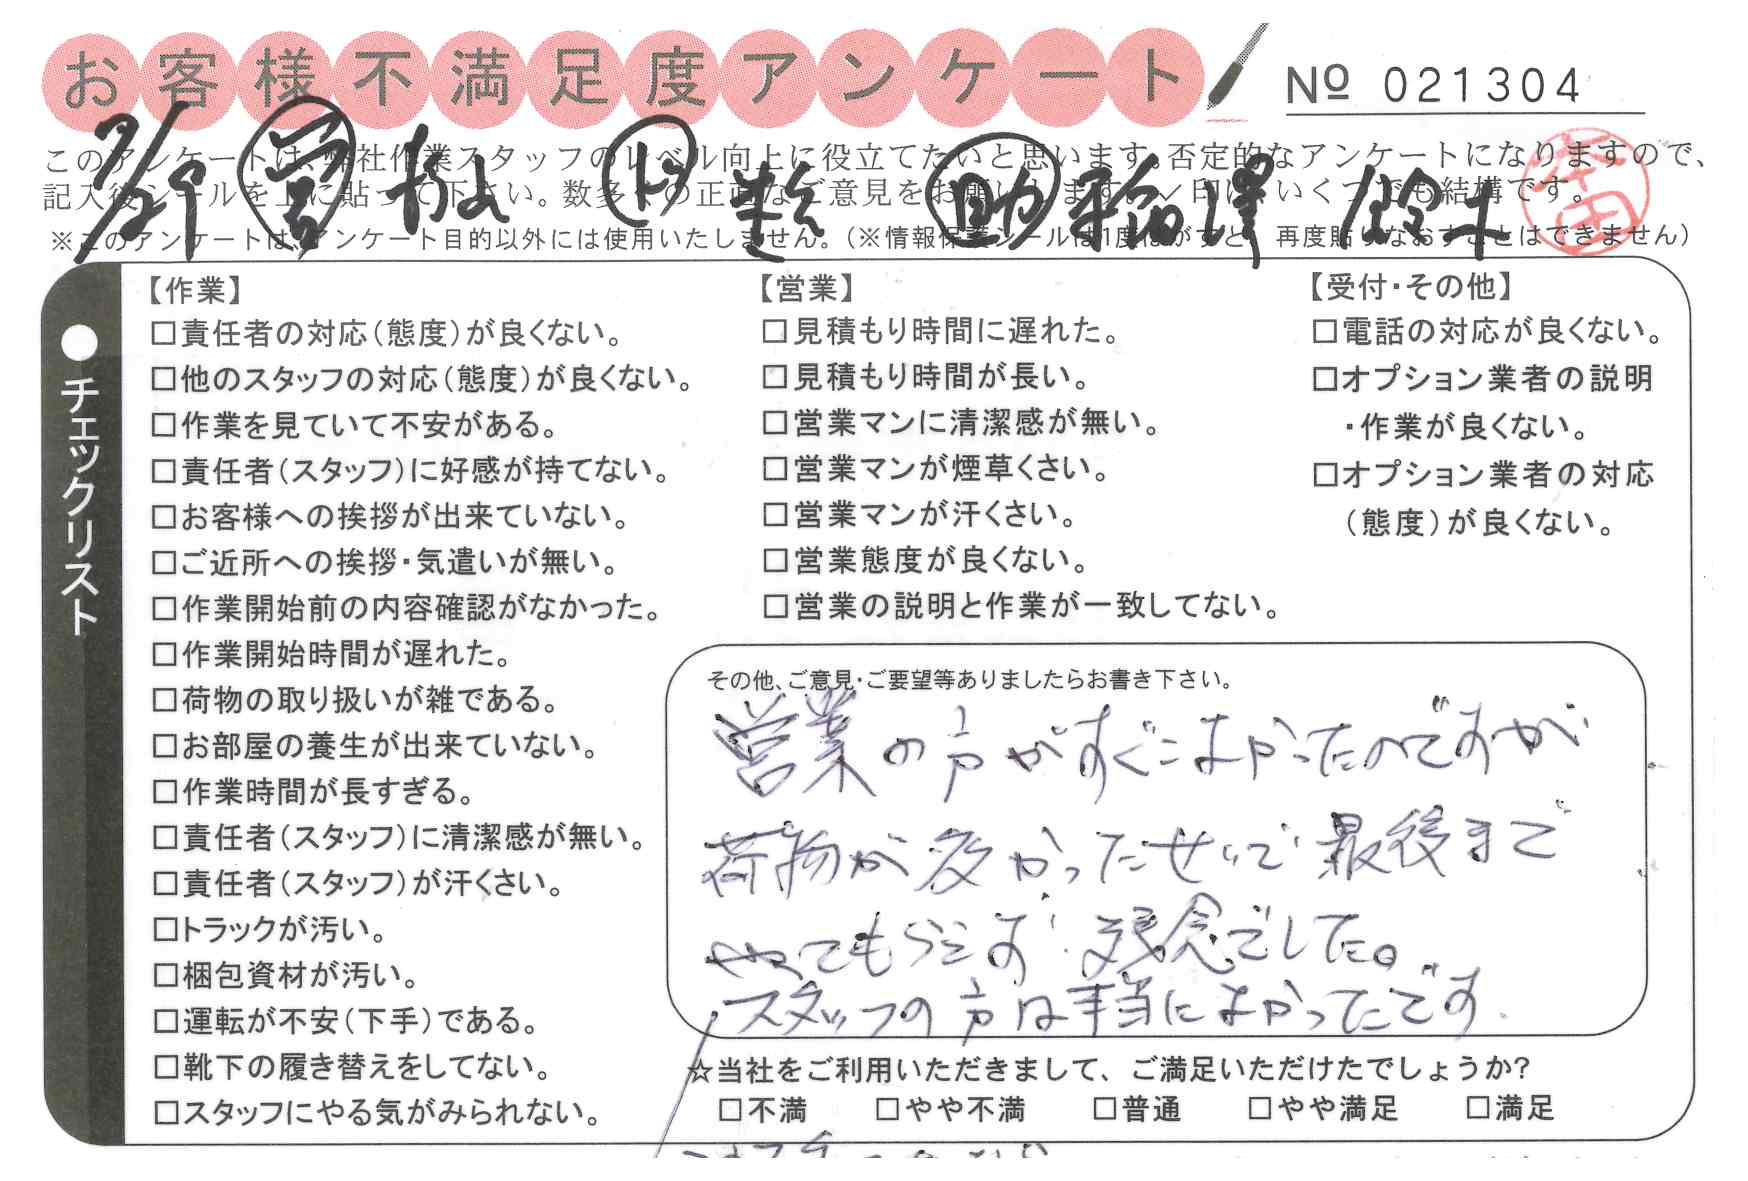 お客様不満足度アンケート
№ 021304
7/29 ㊂ 助 稲澤 鈴木
このアンケートは、弊社作業スタッフのレベル向上に役立てたいと思います。否定的なアンケートになりますので、
記入後シールを上に貼って下さい。数多くの正直なご意見をお願いします。✓印は、いくつでも結構です。
※このアンケートは、アンケート目的以外には使用いたしません。（※情報保護シールは1度はがすと、再度貼りなおすことはできません）
チェックリスト
【作業】
□責任者の対応（態度）が良くない。
□他のスタッフの対応（態度）が良くない。
□作業を見ていて不安がある。
□責任者（スタッフ）に好感が持てない。
□お客様への挨拶が出来ていない。
□ご近所への挨拶・気遣いが無い。
□作業開始前の内容確認がなかった。
□作業開始時間が遅れた。
□荷物の取り扱いが雑である。
□お部屋の養生が出来ていない。
□作業時間が長すぎる。
□責任者（スタッフ）に清潔感が無い。
□責任者（スタッフ）が汗くさい。
□トラックが汚い。
□梱包資材が汚い。
□運転が不安（下手）である。
□靴下の履き替えをしてない。
□スタッフにやる気がみられない。
【営業】
□見積もり時間に遅れた。
□見積もり時間が長い。
□営業マンに清潔感が無い。
□営業マンが煙草くさい。
□営業マンが汗くさい。
□営業態度が良くない。
□営業の説明と作業が一致してない。
【受付・その他】
□電話の対応が良くない。
□オプション業者の説明
・作業が良くない。
□オプション業者の対応
（態度）が良くない。
その他、ご意見・ご要望等ありましたらお書き下さい。
営業の方がすごくよかったのですが
荷物が多かったせいで最後まで
やってもらえず残念でした。
スタッフの方は本当によかったです。
☆当社をご利用いただきまして、ご満足いただけたでしょうか?
□不満 □やや不満 □普通 □やや満足 □満足